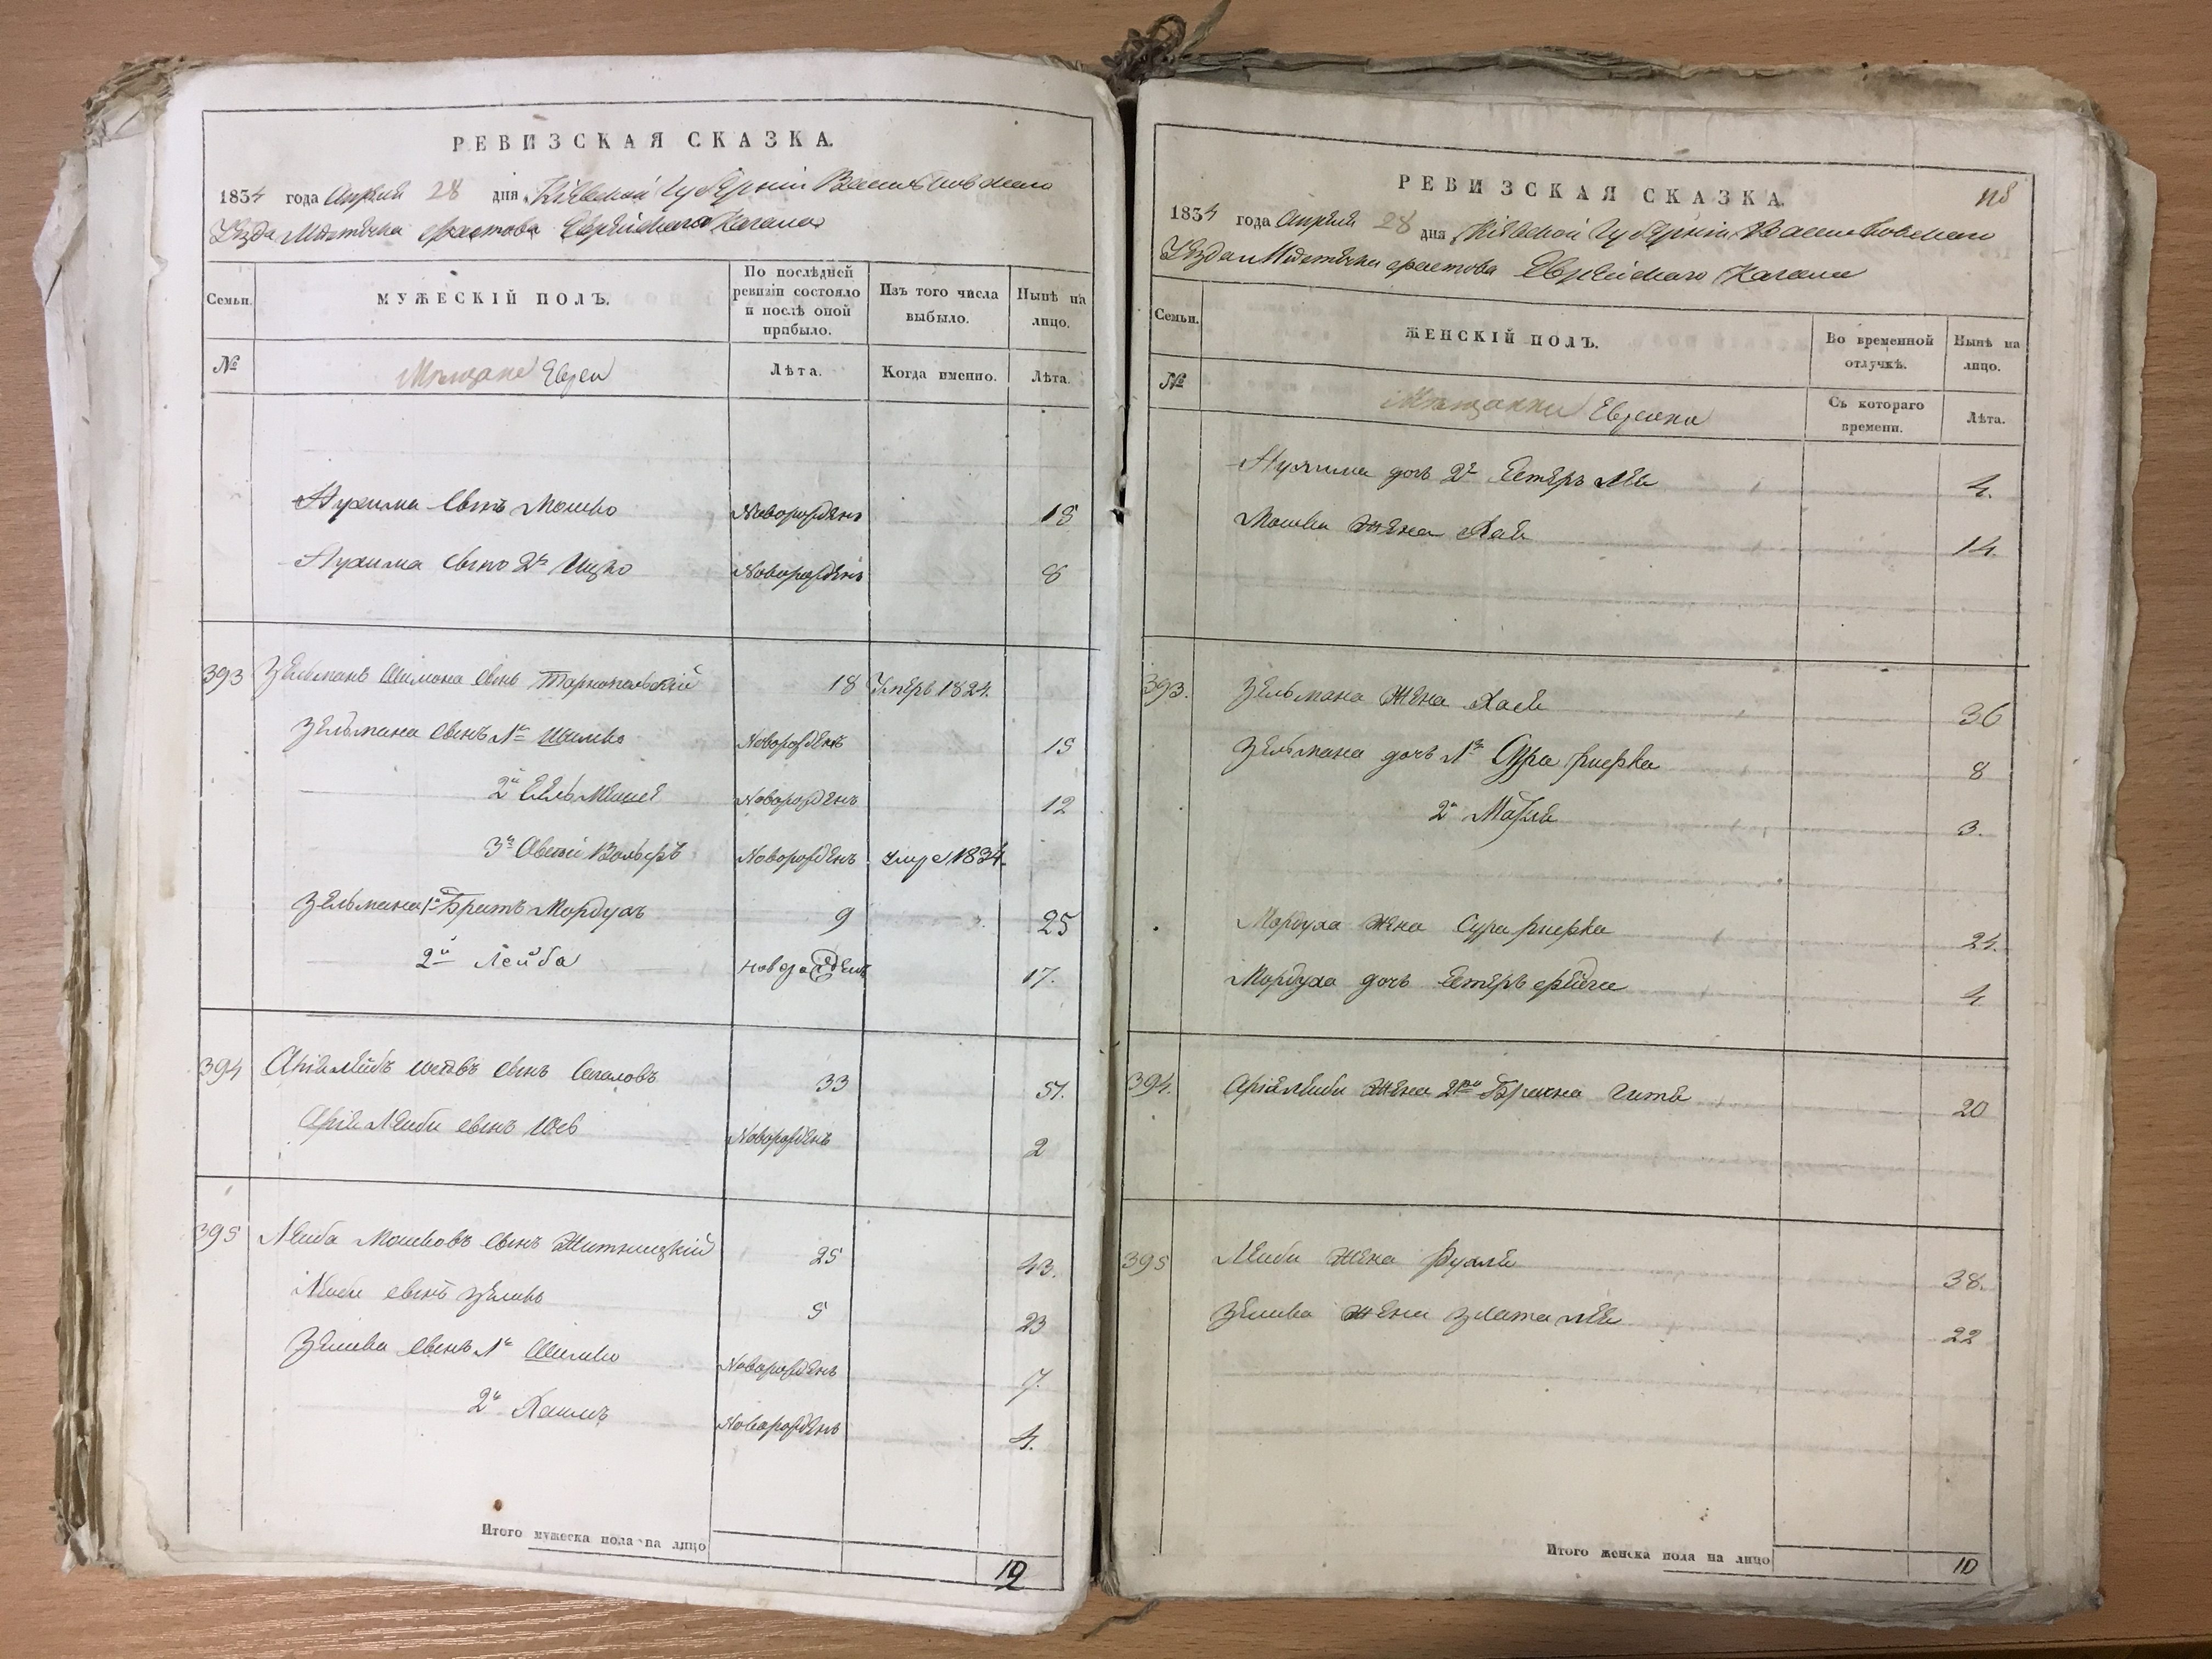 РЕВИЗСКАЯ СКАЗКА.
1834 года Апреля 28 дня Кіевской Губерніи Васильковскаго
Уезда Местечка Фастова Еврейскаго Кагала
Семьи. МУЖЕСКІЙ ПОЛЪ. По послѣдней ревизіи состояло и послѣ оной прибыло. Изъ того числа выбыло. Нынѣ на лицо.
№ Мещане Евреи Лѣта. Когда именно. Лѣта.
Нухима сынъ Мошко Новорожденъ 18
Нухима сынъ 2й Ицко Новорожденъ 8
393 Зельманъ Шимона сынъ Тарнопольскій 18 Умеръ 1824.
Зельмана сынъ 1й Шимко Новорожденъ 15
2й Новорожденъ 12
3й Вольфъ Новорожденъ 1834.
Зельмана 1й Братъ Мордухъ 9 25
2й Лейба 17.
394 Арія Лейбъ сынъ Сагаловъ 33 51.
Арія Лейби сынъ Іось Новорожденъ 2
395 Лейба Мошковъ сынъ Житницкій 25 43.
Лейби сынъ Зелико 5 23
Зелика сынъ 1й Шимко Новорожденъ 7.
2й Хаимъ Новорожденъ 4.
Итого мужеска пола на лицо 12
118
РЕВИЗСКАЯ СКАЗКА.
1834 года Апреля 28 дня Кіевской Губерніи Васильковскаго
Уезда Местечка Фастова Еврейскаго Кагала
Семьи. ЖЕНСКІЙ ПОЛЪ. Во временной отлучкѣ. Нынѣ на лицо.
№ Мещанки Еврейки Съ котораго времени. Лѣта.
Нухима дочь 2я Естеръ Лея 4.
Мошка жена Хая 14
393. Зельмана жена Хася 36
Зельмана дочь 1я Сура Ривка 8
2я Матля 3.
Мордуха жена Сура Ривка 24.
Мордуха дочь Естеръ Фейга 4
394. Арія Лейби жена 2го Брачна Гитя 20
395 Лейби жена Рухля 38.
Зелика жена Злата Лея 22
Итого женска пола на лицо 10